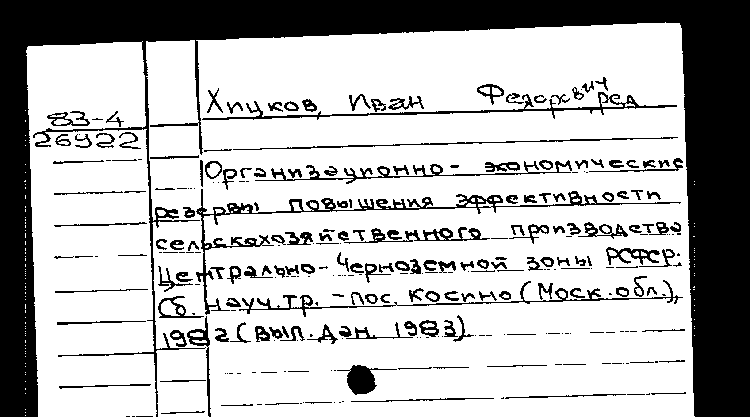 Хицков, Иван Федорович
ред.
83-4
26922
Организационно-экономические
резервы повышения эффективности
сельскохозяйственного производства
Центрально-Черноземной зоны РСФСР:
Сб. науч. тр. - пос. Косино (Моск. обл.),
1982 (вып. дан. 1983)